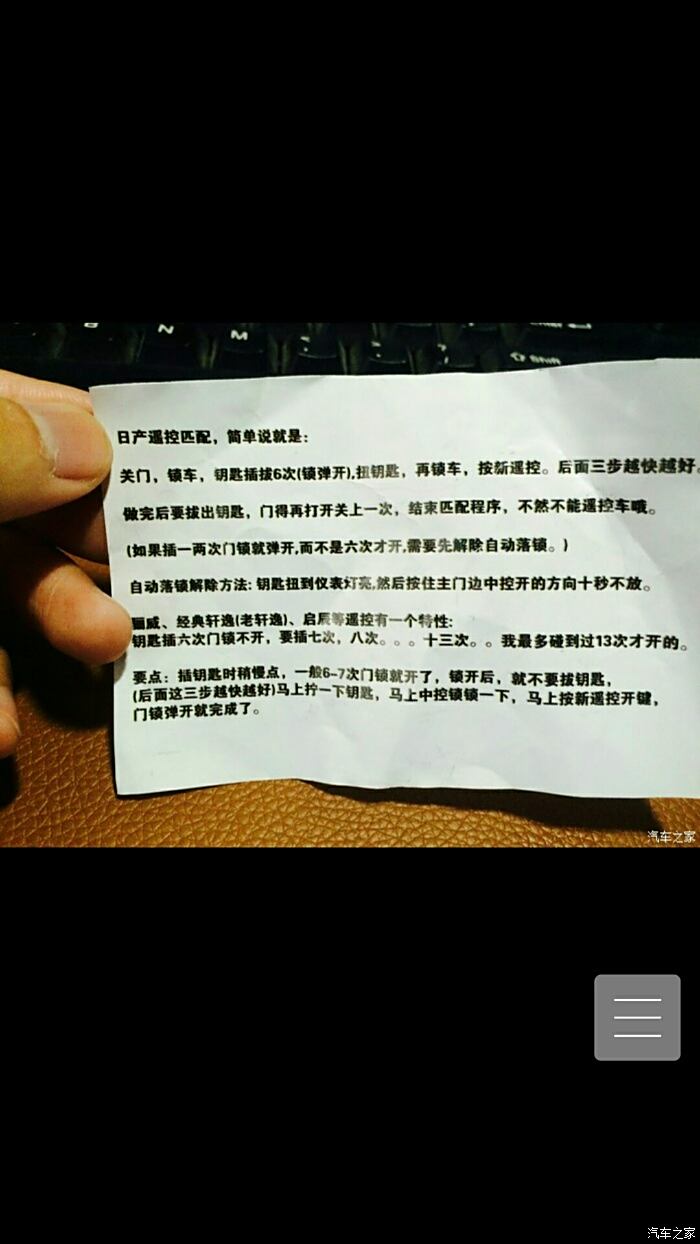 N M
Shift
日产遥控匹配，简单说就是：
关门，锁车，钥匙插拔6次(锁弹开),扭钥匙，再锁车，按新遥控。后面三步越快越好。
做完后要拔出钥匙，门得再打开关上一次，结束匹配程序，不然不能遥控车哦。
(如果插一两次门锁就弹开,而不是六次才开,需要先解除自动落锁。)
自动落锁解除方法: 钥匙扭到仪表灯亮,然后按住主门边中控开的方向十秒不放。
骊威、经典轩逸(老轩逸)、启辰等遥控有一个特性:
钥匙插六次门锁不开，要插七次，八次。。。十三次。。我最多碰到过13次才开的。
要点：插钥匙时稍慢点，一般6-7次门锁就开了，锁开后，就不要拔钥匙，
(后面这三步越快越好)马上拧一下钥匙，马上中控锁锁一下，马上按新遥控开键，
门锁弹开就完成了。
汽车之家
汽车之家